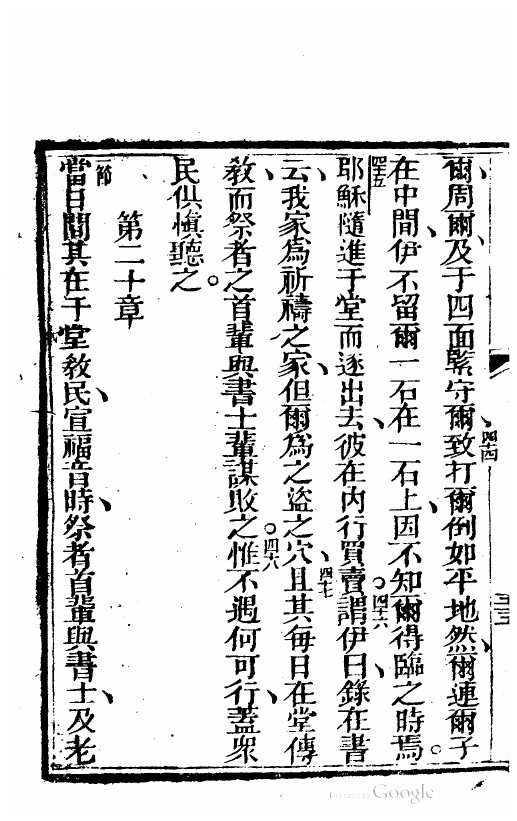 爾周爾、及于四面緊守爾、致打爾倒如平地然、爾連爾子
四十四
在中間、伊不留爾一石在一石上、因不知爾得臨之時焉。
四十五
耶穌隨進于堂而逐出去、彼在內行買賣。謂伊曰、錄在書
四十六
云、我家爲祈禱之家、但爾爲之盜之穴、且其每日在堂傳
四十七
教、而祭者之首輩與書士輩謀敗之。惟不遇何可行、蓋眾
四十八
民俱慎聽之。
第二十章
一節
當日間其在于堂教民、宣福音時、祭者首輩與書士、及老
Digitized by Google